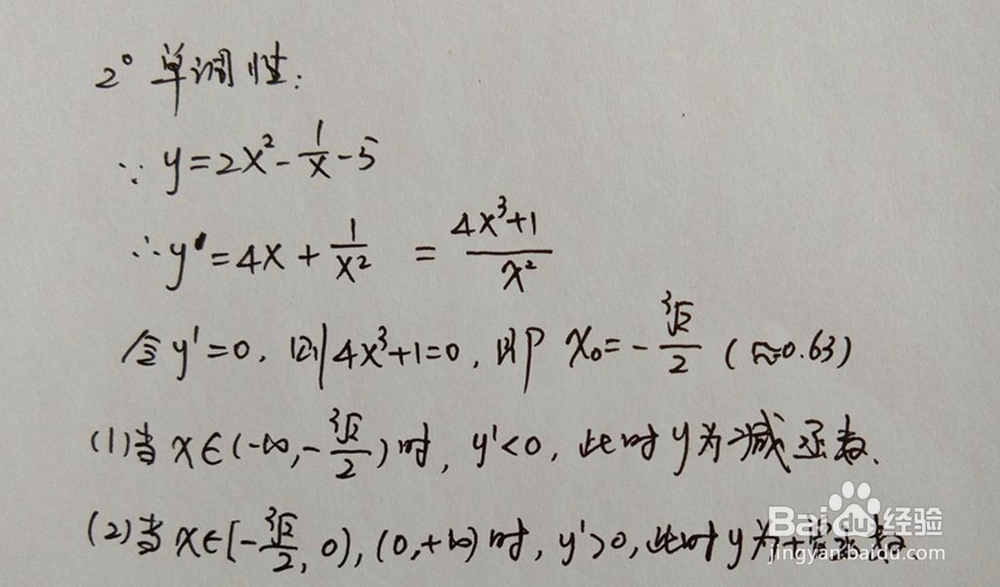 2° 单调性:
∵ y=2x²-1/x-5
∴ y'=4x+1/x² = (4x³+1)/x²
令 y'=0, 则 4x³+1=0, 即 x₀=-∛2/2 (≈0.63)
(1)当 x∈(-∞,-∛2/2)时, y'<0, 此时 y为减函数.
(2)当 x∈[-∛2/2, 0),(0,+∞)时, y'>0, 此时 y为增函数.
Baidu经验
jingyan.baidu.com